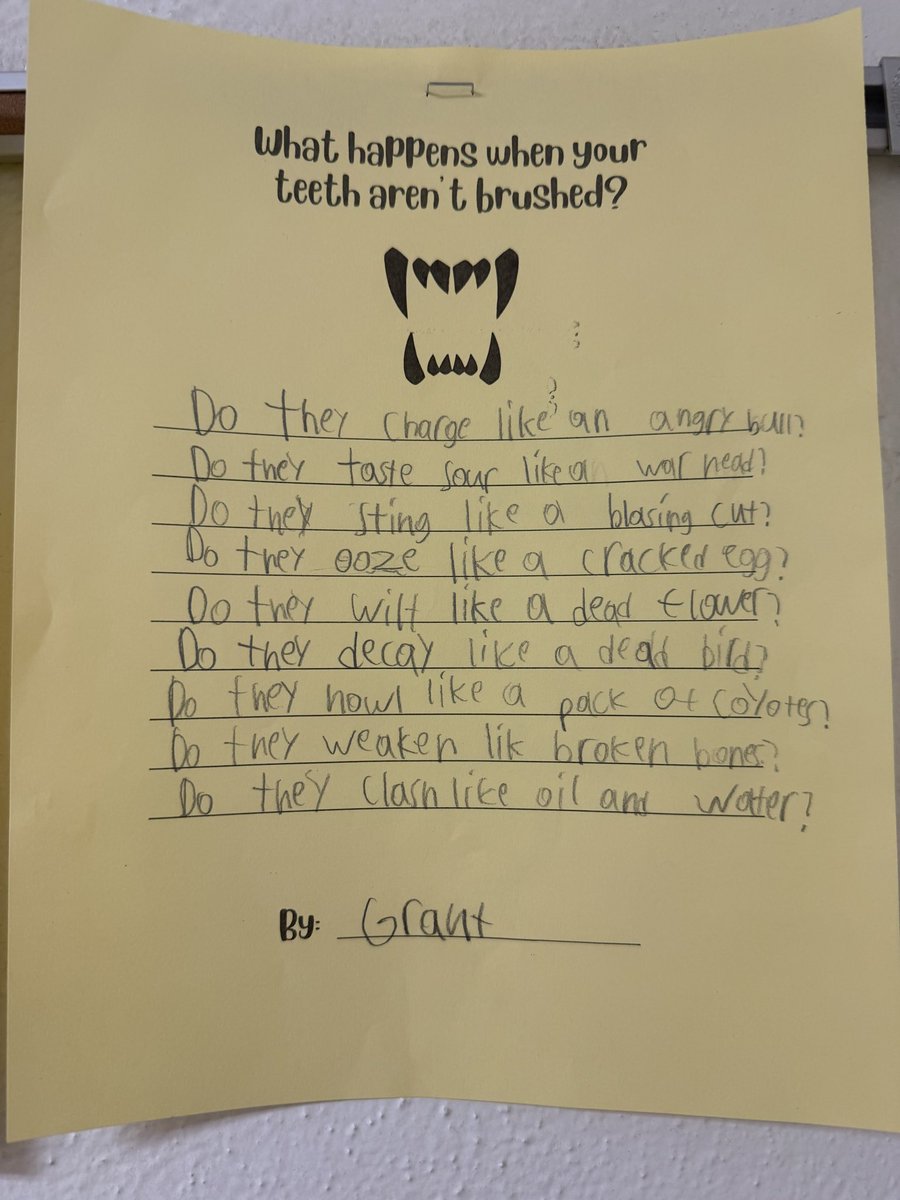 What happens when your
teeth aren't brushed?
Do they charge like an angry bull?
Do they taste sour like a war head?
Do they sting like a blasing cut?
Do they ooze like a cracked egg?
Do they wilt like a dead flower?
Do they decay like a dead bird?
Do they howl like a pack of coyotes?
Do they weaken lik broken bones?
Do they clash like oil and water?
By: Grant